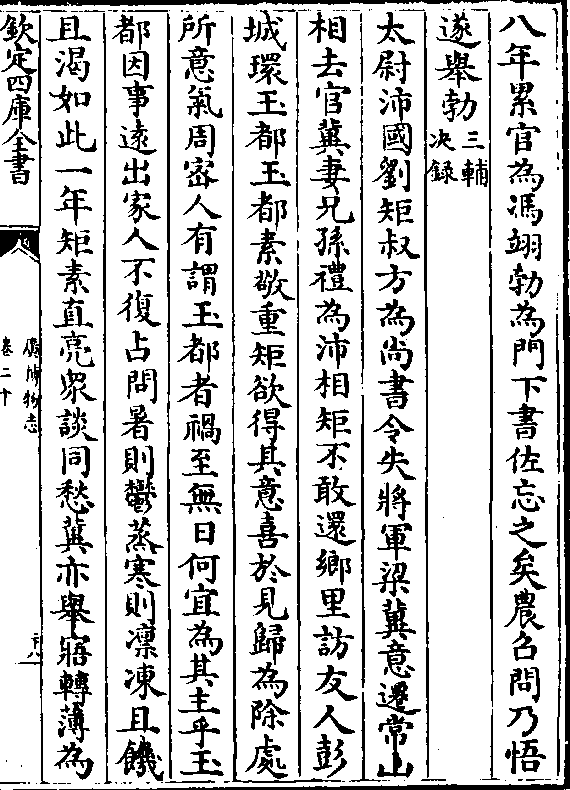 八年累官為馮翊勃為門下書佐忘之矣農召問乃悟
遂舉勃三輔决録
太尉沛國劉矩叔方為尚書令失將軍梁冀意遷常山
相去官冀妻兄孫禮為沛相矩不敢還鄉里訪友人彭
城環玉都玉都素敬重矩欲得其意喜於見歸為除處
所意氣周宻人有謂玉都者禍至無日何宜為其主乎玉
都因事逺出家人不復占問暑則鬱蒸寒則凛凍且饑
且渴如此一年矩素直亮衆談同愁冀亦舉寤轉薄為
欽定四庫全書
廣博物志
卷二十
十八